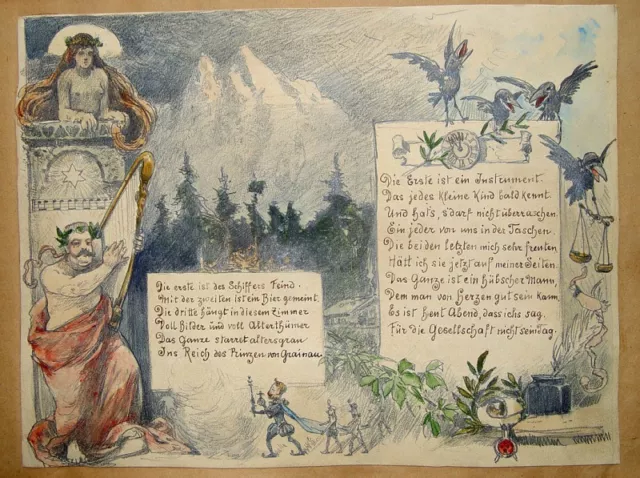 Die erste ist des Schiffers Feind.
Mit der zweiten ist ein Bier gemeint.
Die dritte hängt in diesem Zimmer
Voll Bilder und voll Alterthümer
Das Ganze starret altersgrau
Ins Reich des Prinzen von Grainau.
Die Erste ist ein Instrument.
Das jedes kleine Kind bald kennt
Und hat's, s'darf nicht überraschen.
Ein jeder von uns in des Taschen.
Die beiden letzten mich sehr freuten
Hätt ich sie jetzt auf meiner Seiten.
Das Ganze ist ein hübscher Mann,
Dem man von Herzen gut sein kann,
Es ist heut Abend, dass ichs sag.
Für die Gesellschaft nicht sein Tag.